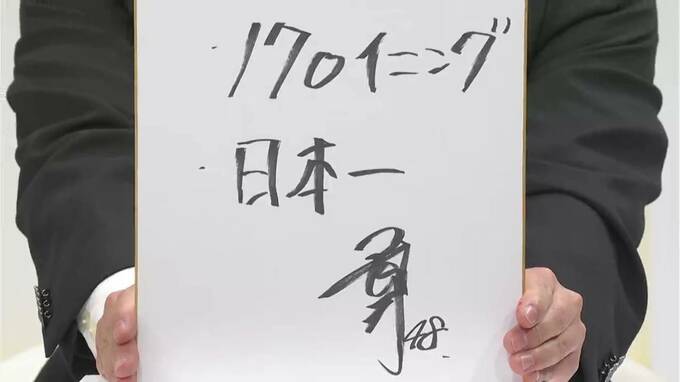 ・170イニング
・日本一
48